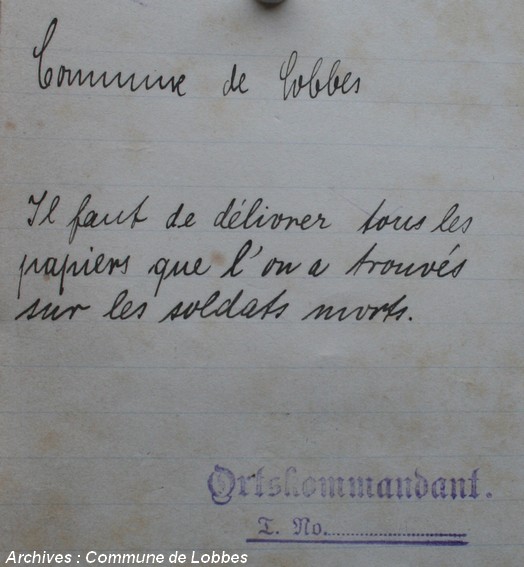 Commune de Lobbes
Il faut de délivrer tous les
papiers que l'on a trouvés
sur les soldats morts.
Ortskommandant.
T. No.
Archives : Commune de Lobbes